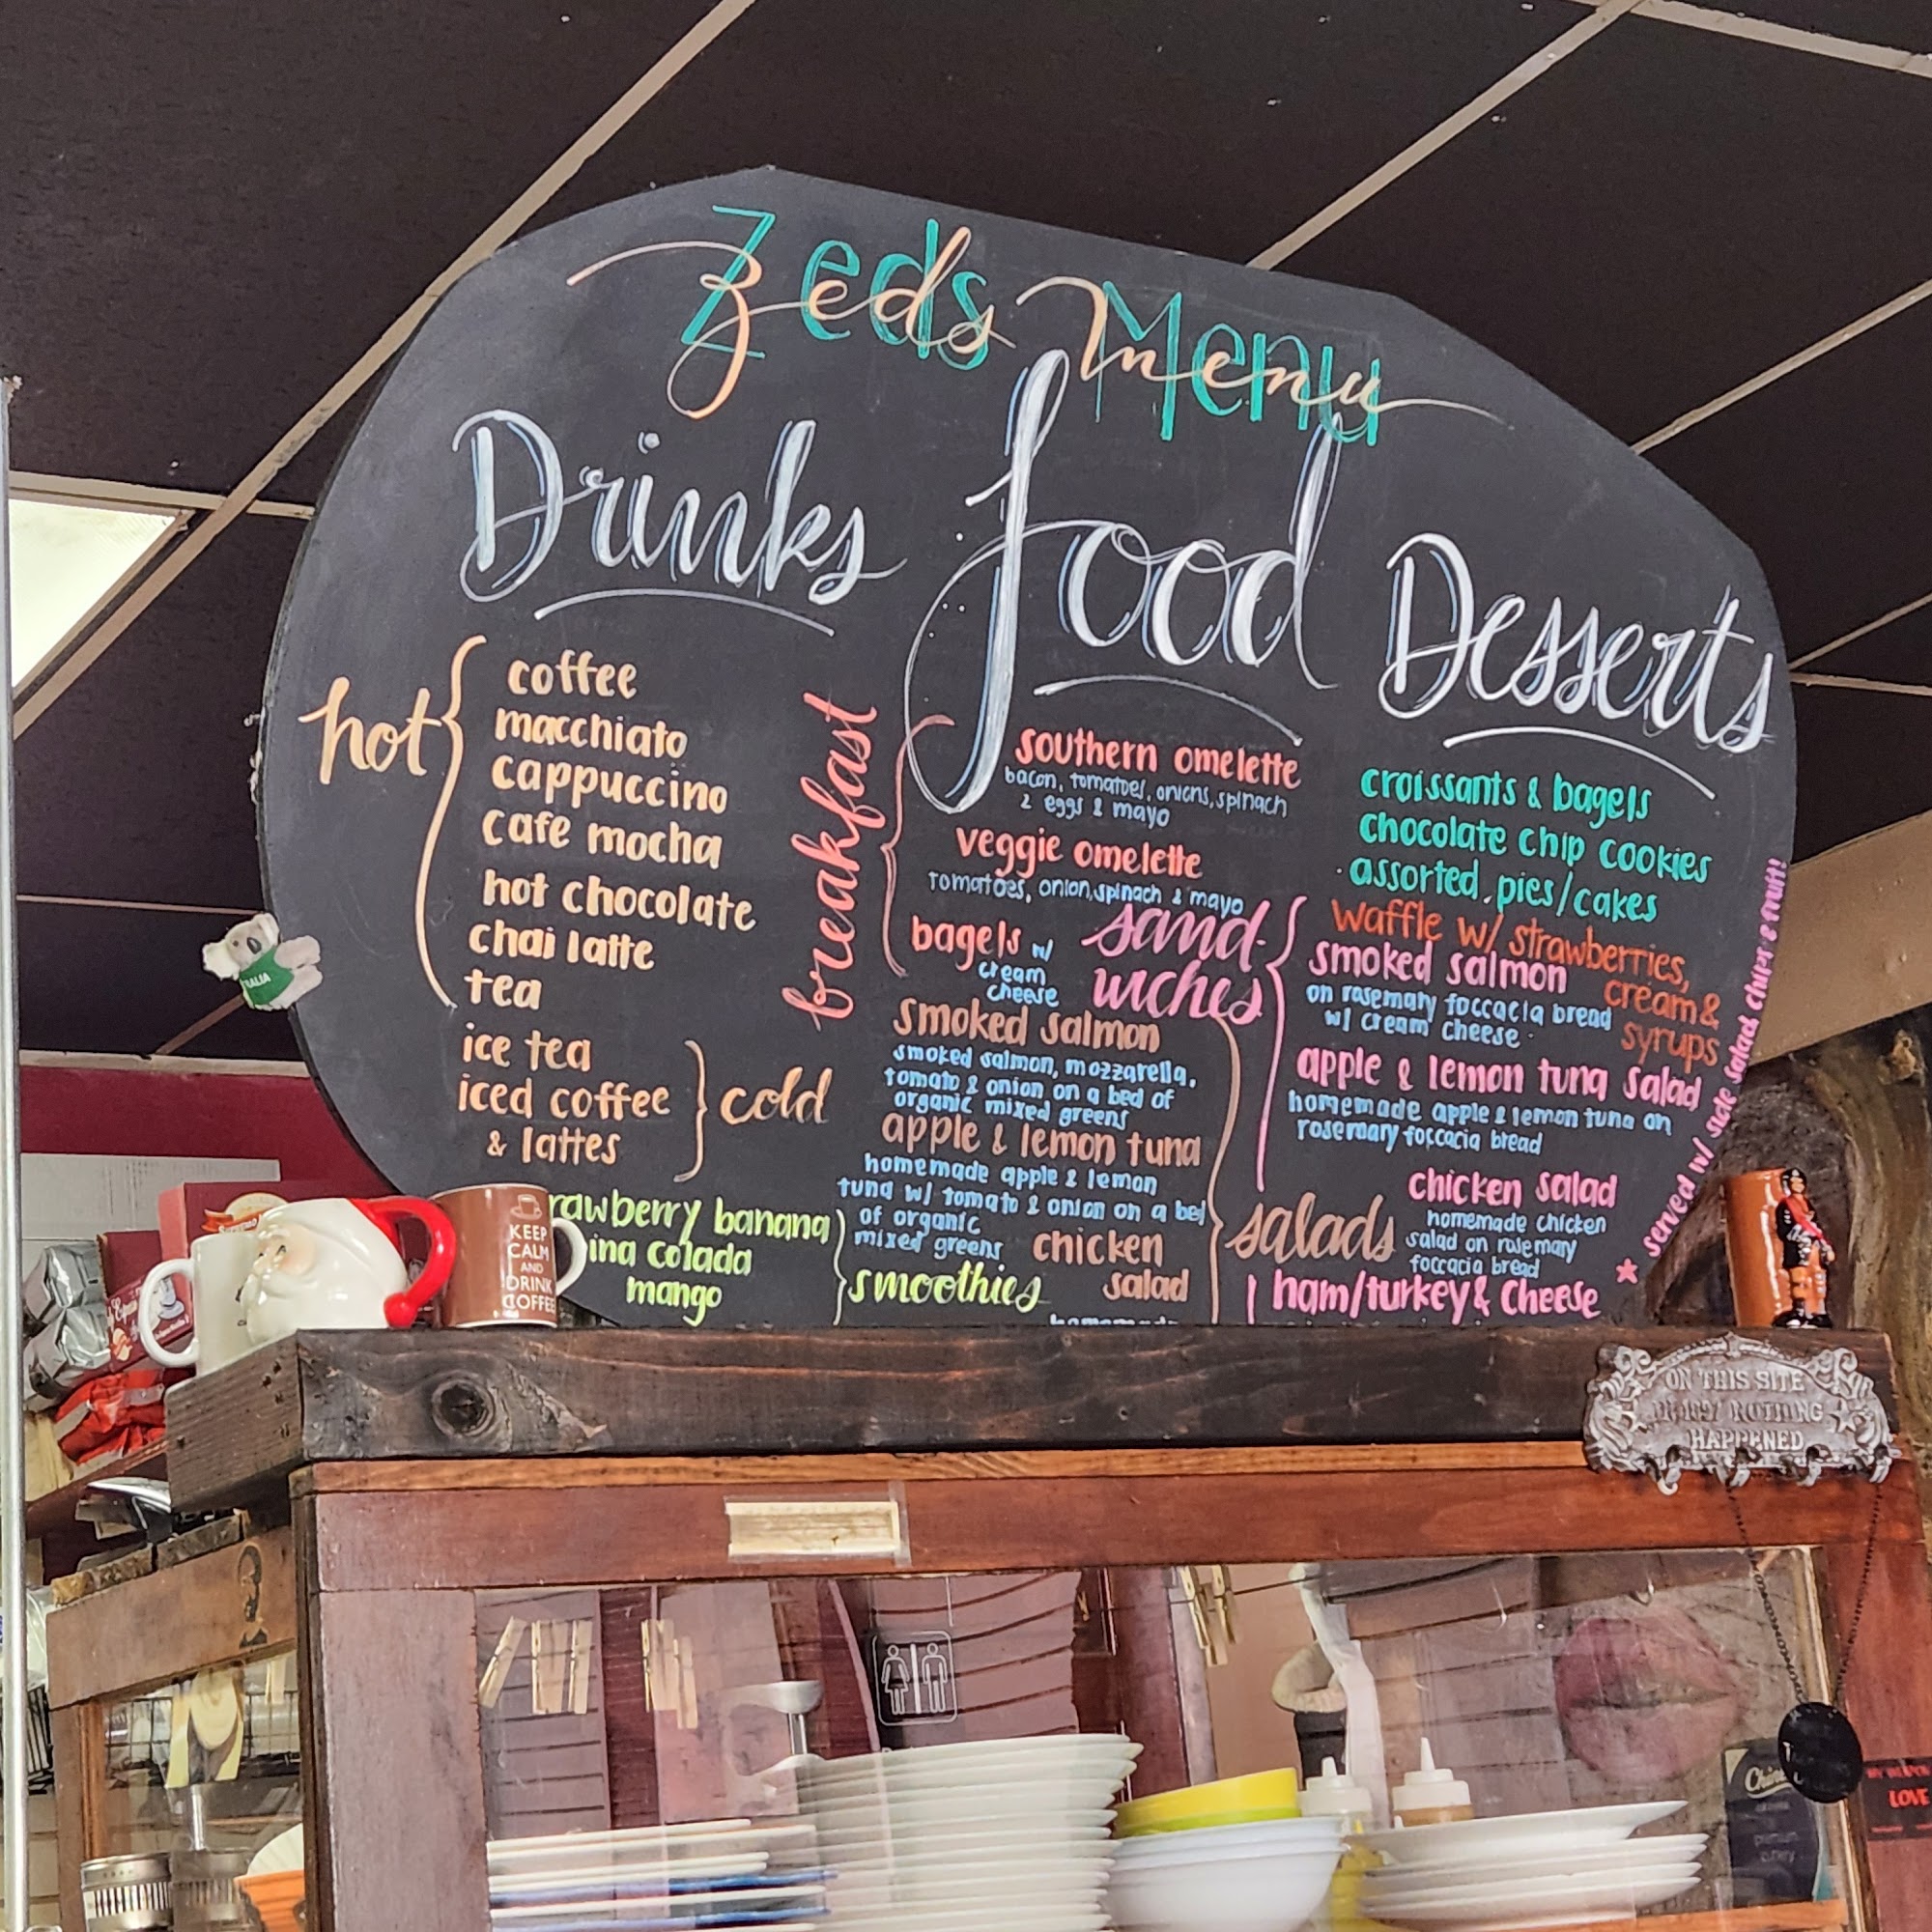 Zeds Menu
Zeds menu
Drinks
hot
coffee
macchiato
cappuccino
cafe mocha
hot chocolate
chai latte
tea
ice tea
iced coffee
& lattes
cold
rawberry banana
ina colada
mango
smoothies
food
breakfast
southern omelette
bacon, tomatoes, onions, spinach
2 eggs & mayo
veggie omelette
tomatoes, onion, spinach & mayo
bagels w/
cream
cheese
smoked salmon
smoked salmon, mozzarella,
tomato & onion on a bed of
organic mixed greens
apple & lemon tuna
homemade apple & lemon
tuna w/ tomato & onion on a bed
of organic
mixed greens
chicken
salad
homemade
salads
Desserts
croissants & bagels
chocolate chip cookies
assorted pies/cakes
waffle w/ strawberries,
cream &
syrups
sand-
wiches
smoked salmon
on rosemary foccacia bread
w/ cream cheese
apple & lemon tuna salad
homemade apple & lemon tuna on
rosemary foccacia bread
chicken salad
homemade chicken
salad on rosemary
foccacia bread
ham/turkey & cheese
* served w/ side salad chips & fruit!
ALIA
KEEP
CALM
AND
DRINK
COFFEE
ON THIS SITE
IN 1897 NOTHING
HAPPENED
LOVE